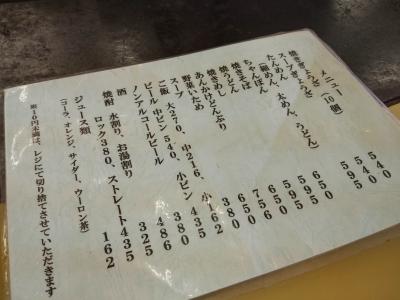 メニュー
焼きぎょうざ (10個) 540
スープぎょうざ 540
たんめん 595
(細めん、太めん、うどん)
ちゃんぽん 650
焼きそば 595
焼うどん 595
焼きめし
あんかけどんぶり 756
野菜いため 650
スープ 380
ご飯 大270、中216、小162
ビール 中ビン540、小ビン435
ノンアルコールビール 380
酒 486
焼酎 水割り、お湯割り 325
ロック380、ストレート435
ジュース類 162
(コーラ、オレンジ、サイダー、ウーロン茶)
※10円未満は、レジにて切り捨てさせていただきます